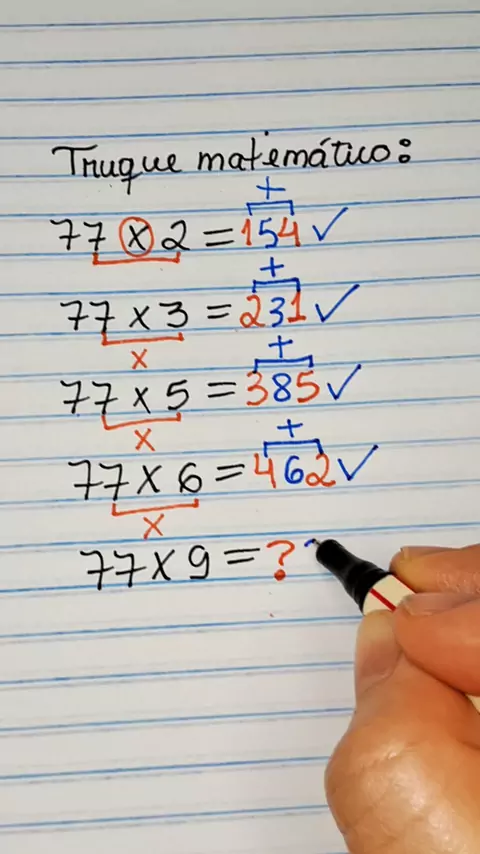 Truque matemático:
+
77 x 2 = 154 ✓
+
77 x 3 = 231 ✓
x
+
77 x 5 = 385 ✓
x
+
77 x 6 = 462 ✓
x
77 x 9 = ?